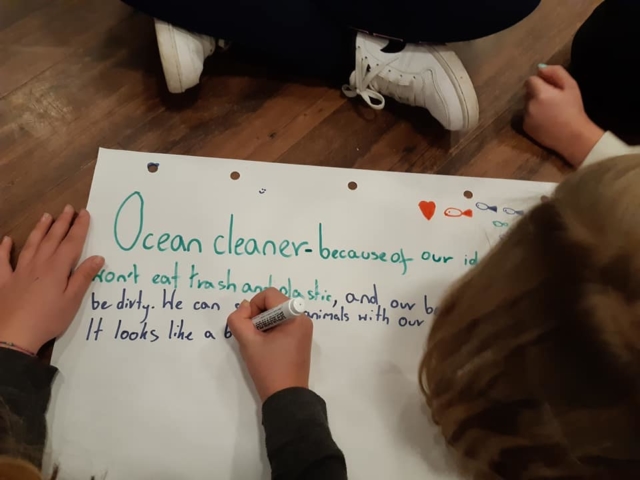 Ocean cleaner-because of our
won't eat trash and plastic, and our
be dirty. We can animals with our
It looks like a